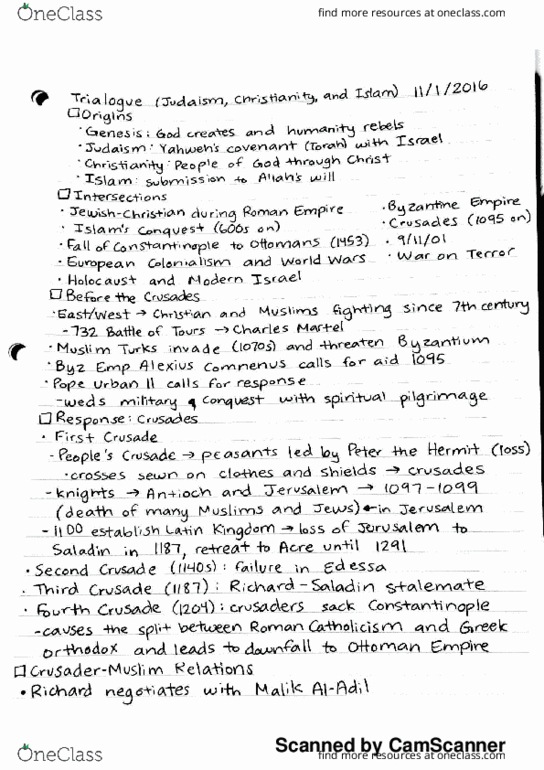 OneClass
find more resources at oneclass.com
Trialogue (Judaism, Christianity, and Islam) 11/1/2016
Origins
· Genesis: God creates and humanity rebels
· Judaism: Yahweh's covenant (Torah) with Israel
· Christianity: People of God through Christ
· Islam: submission to Allah's will
Intersections
· Jewish-Christian during Roman Empire
· Islam's Conquest (600s on)
· Fall of Constantinople to Ottomans (1453)
· European Colonialism and World Wars
· Holocaust and Modern Israel
· Byzantine Empire
· Crusades (1095 on)
· 9/11/01
· War on Terror
Before the Crusades
· East/West → Christian and Muslims fighting since 7th century
- 732 Battle of Tours → Charles Martel
· Muslim Turks invade (1070s) and threaten Byzantium
· Byz Emp Alexius Comnenus calls for aid 1095
· Pope Urban II calls for response
- weds military & conquest with spiritual pilgrimage
Response: Crusades
· First Crusade
- People's Crusade → peasants led by Peter the Hermit (loss)
· crosses sewn on clothes and shields → crusades
- knights → Antioch and Jerusalem → 1097-1099
(death of many Muslims and Jews) ← in Jerusalem
- 1100 establish Latin Kingdom → loss of Jerusalem to
Saladin in 1187, retreat to Acre until 1291
· Second Crusade (1140s): failure in Edessa
· Third Crusade (1187): Richard-Saladin stalemate
· Fourth Crusade (1204): crusaders sack Constantinople
- causes the split between Roman Catholicism and Greek
orthodox and leads to downfall to Ottoman Empire
Crusader-Muslim Relations
· Richard negotiates with Malik Al-Adil
Scanned by CamScanner
OneClass
find more resources at oneclass.com